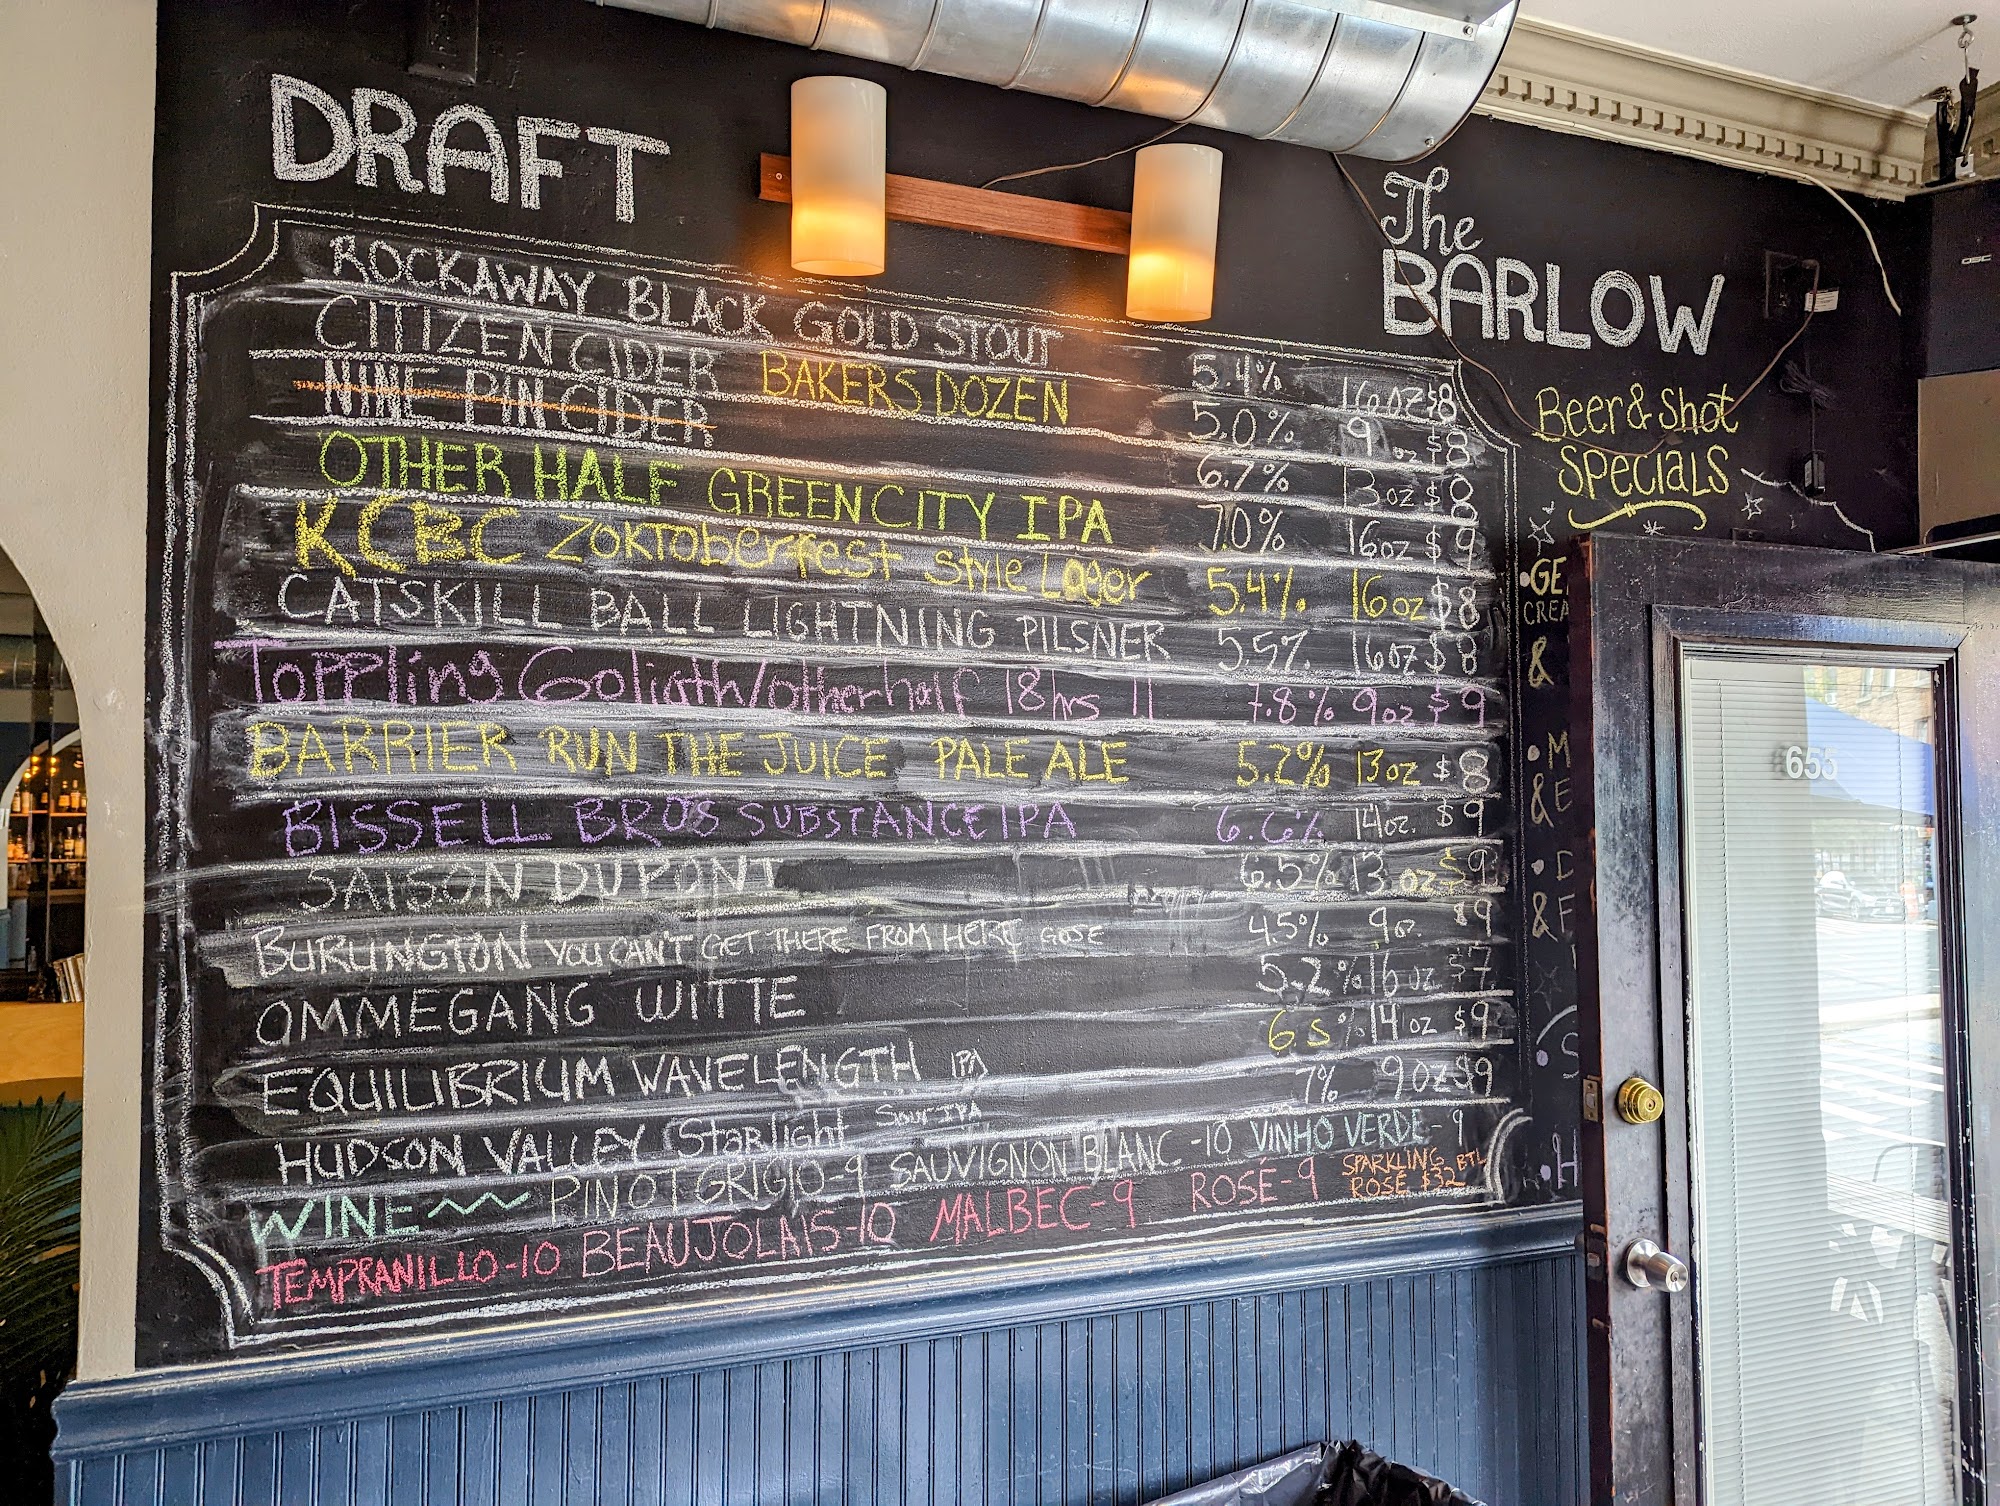 DRAFT
The
BARLOW
ROCKAWAY BLACK GOLD STOUT 5.4% 16oz $8
CITIZEN CIDER BAKERS DOZEN 5.0% 9 oz $8
NINE PIN CIDER 6.7% 13oz $8
OTHER HALF GREEN CITY IPA 7.0% 16oz $9
KCBC Zoktoberfest Style Lager 5.4% 16oz $8
CATSKILL BALL LIGHTNING PILSNER 5.5% 16oz $8
Toppling Goliath/otherhalf 18hrs 11 7.8% 9oz $9
BARRIER RUN THE JUICE PALE ALE 5.2% 13oz $8
BISSELL BROS SUBSTANCE IPA 6.6% 14oz. $9
SAISON DUPONT 6.5% 13 oz $9
BURLINGTON YOU CAN'T GET THERE FROM HERE GOSE 4.5% 9oz. $9
OMMEGANG WITTE 5.2% 16oz $7
EQUILIBRIUM WAVELENGTH IPA 6.5% 14oz $9
HUDSON VALLEY Starlight SOUR IPA 7% 9oz $9
WINE PINOT GRIGIO-9 SAUVIGNON BLANC-10 VINHO VERDE-9
TEMPRANILLO-10 BEAUJOLAIS-10 MALBEC-9 ROSÉ-9 SPARKLING ROSE BTL $32
Beer & Shot
Specials
&
&
&
655
QSC